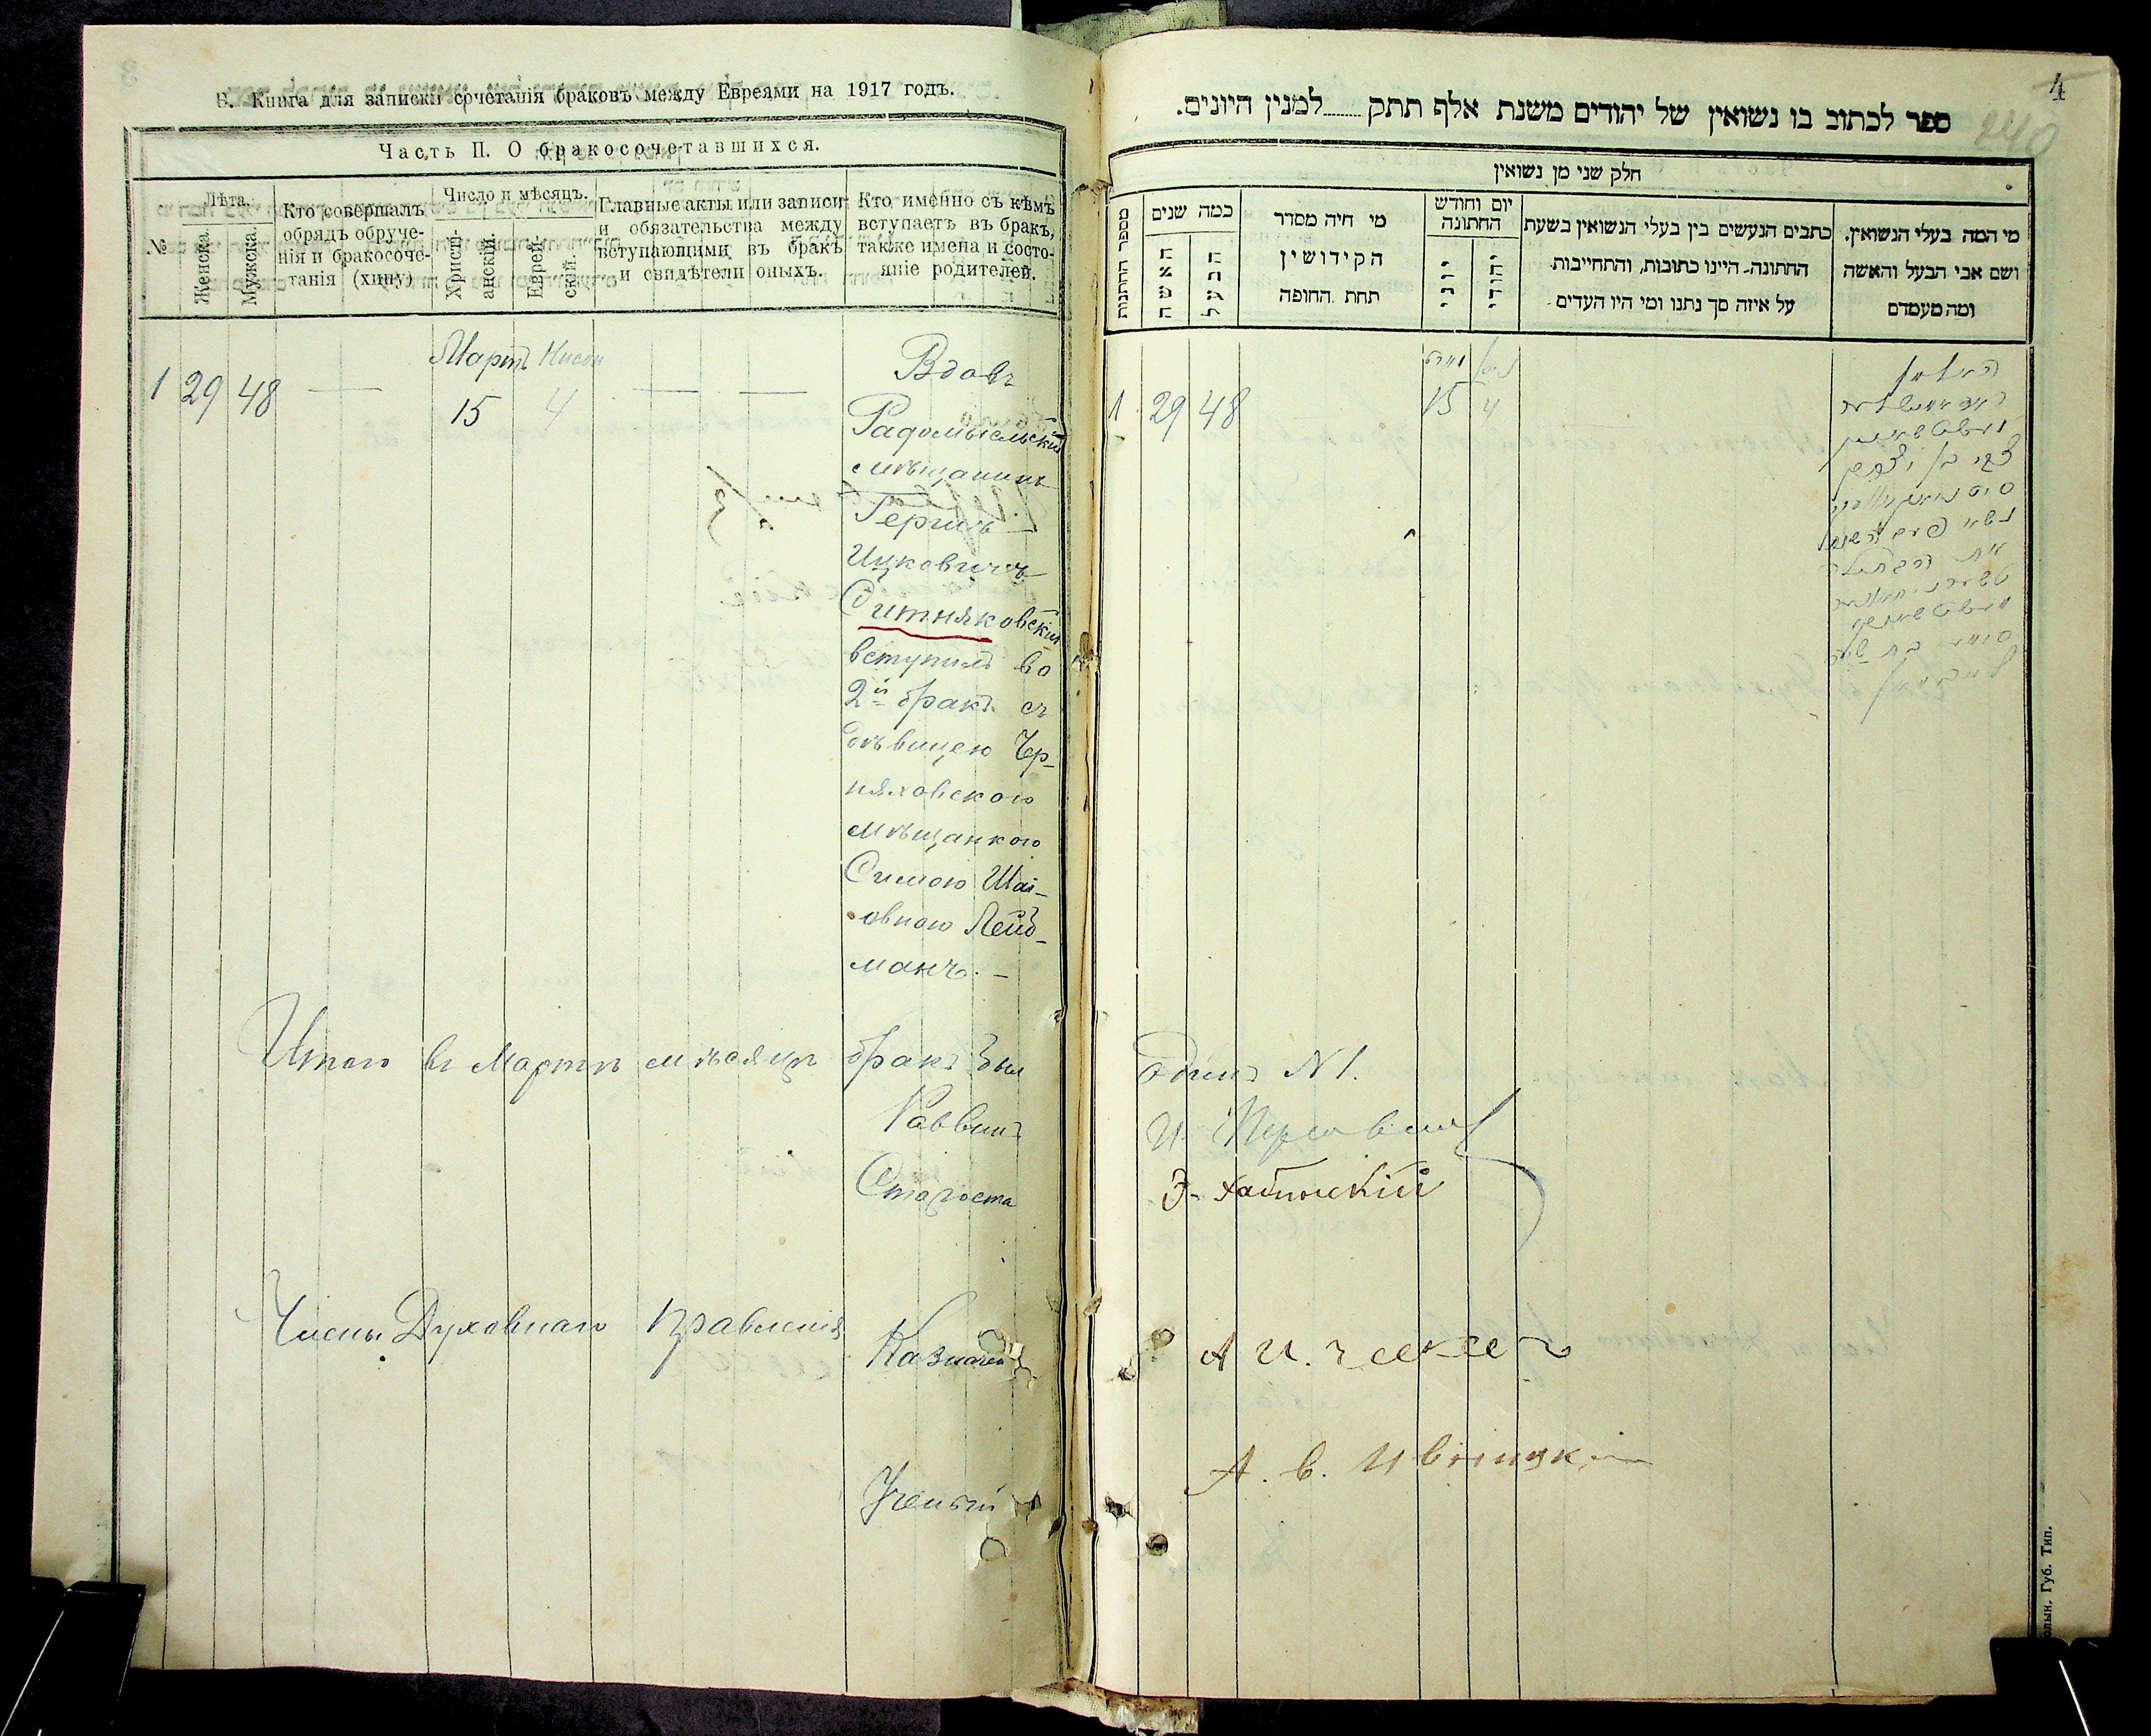 6. Книга для записки сочетанія браковъ между Евреями на 1917 годъ.
Часть II. О бракосочетавшихся.
№
Лѣта.
Женска.
Мужска.
Кто совершалъ
обрядъ обруче-
нія и бракосоче-
танія (хипу)
Число и мѣсяцъ.
Христі-
анскій.
Еврей-
скій.
Главные акты или записи
и обязательства между
вступающими въ бракъ
и свидѣтели оныхъ.
Кто именно съ кѣмъ
вступаетъ въ бракъ,
также имена и состо-
яніе родителей.
Мартъ Нисон
1 29 48 — 15 4 — —
Вдовъ
Радомысльскій
мѣщанинъ
Гершъ
Ицковичъ
Ситняковскій
вступилъ во
2й бракъ съ
дѣвицею Чер-
няховскою
мѣщанкою
Симою Шаі-
овною Лейд-
манъ. —
Итого въ Мартѣ мѣсяцѣ бракъ был
Раввинъ
Староста
Члены Духовнаго Правленія
Казначей
Ученый
4
240
ספר לכתוב בו נשואין של יהודים משנת אלף תתק........למנין היונים.
חלק שני מן נשואין
מספר החתונות
כמה שנים
האשה
הבעל
מי היה מסדר
הקידושין
תחת החופה
יום וחודש
החתונה
יוני
יהודי
כתבים הנעשים בין בעלי הנשואין בשעת
החתונה. היינו כתובות, והתחייבות
על איזה סך נתנו ומי היו העדים
מי המה בעלי הנשואין.
ושם אבי הבעל והאשה
ומה מעמדם
1 29 48 — 15 4
האלמן
צבי בן יצחק
Одинъ N 1.
Э. Хабинскій
А. В. Ивницкій
Волын. Губ. Тип.